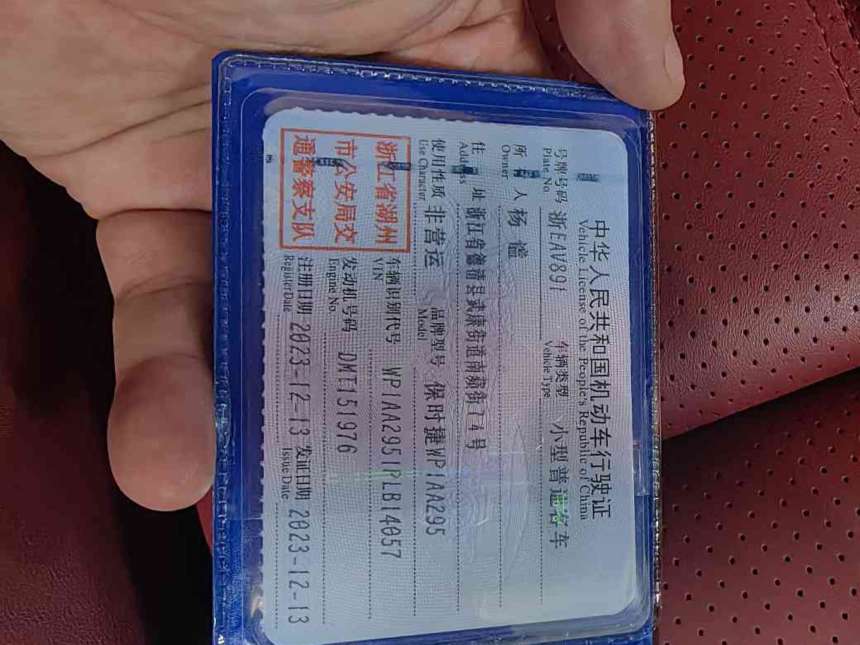 中华人民共和国机动车行驶证
Vehicle License of the People's Republic of China
号牌号码 浙EAV891 车辆类型 小型普通客车
Plate No. Vehicle Type
所有人 杨
Owner
住址 浙江省德清县武康街道南 街74号
Address
使用性质 非营运 品牌型号 保时捷WP1AA295
Use Character Model
浙江省湖州
市公安局交
通警察支队
车辆识别代号 WP1AA2951PLB14057
VIN
发动机号码 DMT151976
Engine No.
注册日期 2023-12-13 发证日期 2023-12-13
Register Date Issue Date